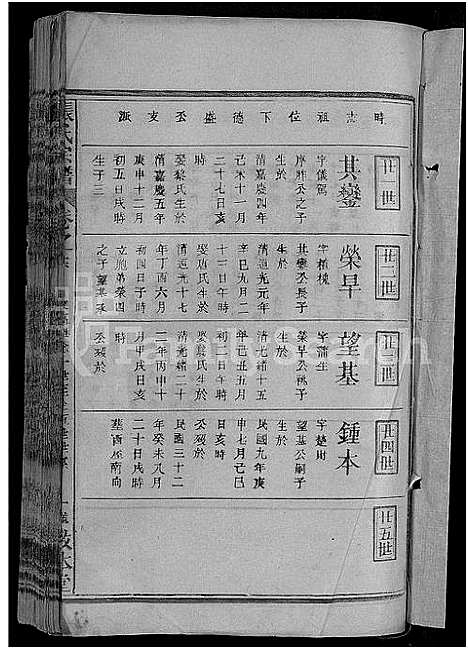 時志祖位下德盛丕支派
廿世
其鑾
字儀駕
序祚公之子
生於
清嘉慶四年
己未十一月
二十七日亥
時
娶黎氏生於
清嘉慶五年
庚申十二月
初五日戌時
生于三
廿二世
榮早
字植槐
其鑾公長子
生於
清道光元年
辛巳九月二
十三日午時
娶唐氏生於
清道光十七
年丁酉六月
初四日子時
立胞弟榮四
之子望基承
廿三世
望基
字蒲生
榮早公祧子
生於
清光緒十五
年己丑五月
初九日午時
娶黎氏生於
清光緒二十
二年丙申十
月甲戌日亥
時
丕歿於
廿四世
鍾本
字楚財
望基公嗣子
生於
民國九年庚
申七月己巳
日亥時
丕歿於
民國三十二
年癸未八月
二十日戌時
塟酉房南向
廿五世
張氏宗譜
敦本堂